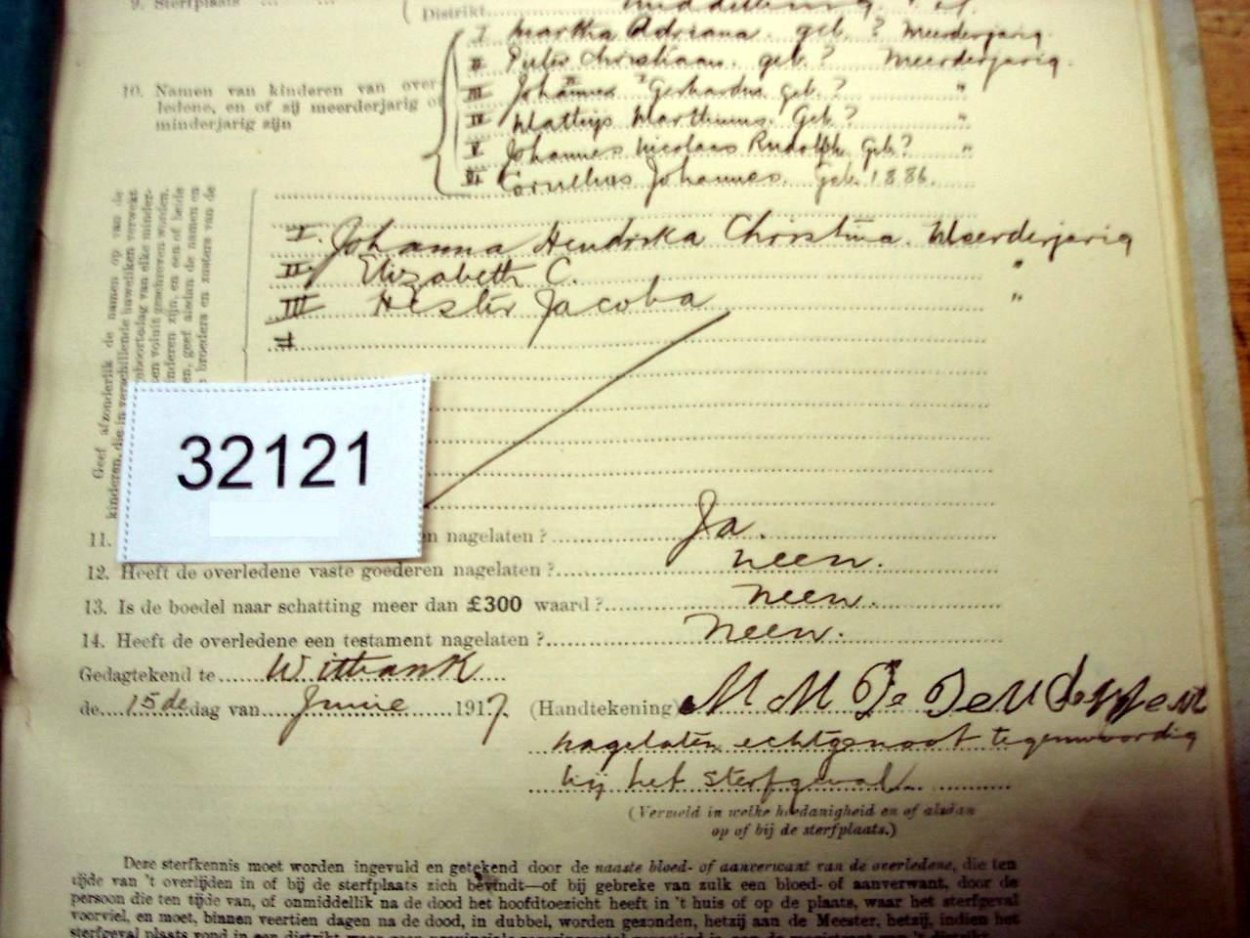 9. Sterfplaats ... ...
Distrikt
10. Namen van kinderen van over-
ledene, en of zij meerderjarig of
minderjarig zijn
I Martha Adriana. geb ? Meerderjarig.
II Christiaan. geb. ? Meerderjarig.
III Johannes Gerhardus geb ? "
IV Mattijs Marthinus. Geb ? "
V Johannes Nicolaas Rudolph Geb ? "
VI Cornelius Johannes. Geb. 1886.
Geef afzonderlik de namen op van de
kinderen, die in verschillende huweliken verwekt
I. Johanna Hendrika Christina. Meerderjarig
II Elizabeth C. "
III Hester Jacoba "
32121
11. nagelaten ?
Ja.
12. Heeft de overledene vaste goederen nagelaten ?
Neen.
13. Is de boedel naar schatting meer dan £300 waard ?
Neen.
14. Heeft de overledene een testament nagelaten ?
Neen.
Gedagtekend te Witbank
de 15de dag van Junie 1917. (Handtekening)
nagelaten echtgenoot tegenwoordig
bij het sterfgeval
(Vermeld in welke hoedanigheid en of alsdan
op of bij de sterfplaats.)
Deze sterfkennis moet worden ingevuld en getekend door de naaste bloed- of aanverwant van de overledene, die ten
tijde van 't overlijden in of bij de sterfplaats zich bevindt—of bij gebreke van zulk een bloed- of aanverwant, door de
persoon die ten tijde van, of onmiddellik na de dood het hoofdtoezicht heeft in 't huis of op de plaats, waar het sterfgeval
voorviel, en moet, binnen veertien dagen na de dood, in dubbel, worden gezonden, hetzij aan de Meester, hetzij, indien het
sterfgeval plaats vond in een distrikt